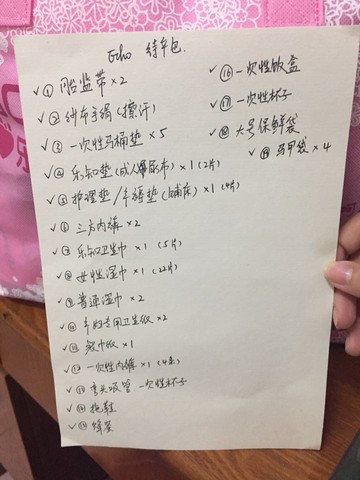 Echo 待产包.
✓① 胎监带 ×2
✓② 纱布手绢 (擦汗)
✓③ 一次性马桶垫 ×5
✓④ 乐知垫 (成人尿布) ×1 (2片)
✓⑤ 护理垫 / 产褥垫 (铺床) ×1 (4片)
✓⑥ 三方内裤 ×2
✓⑦ 乐知卫生巾 ×1 (5片)
✓⑧ 女性湿巾 ×1 (12片)
✓⑨ 普通湿巾 ×2
✓⑩ 产妇专用卫生纸 ×2
✓⑪ 抽纸 ×1
✓⑫ 一次性内裤 ×1 (4条)
✓⑬ 弯头吸管、一次性杯子
✓⑭ 拖鞋
✓⑮ 蜂蜜
✓⑯ 一次性饭盒
✓⑰ 一次性杯子
✓⑱ 大号保鲜袋
✓⑲ 马甲袋 ×4